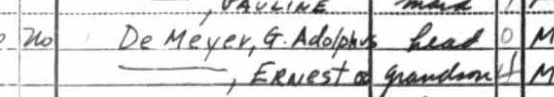 , PAULINE maid
No De Meyer, G. Adolphus head 0 M
——, ERNEST grandson 4 M